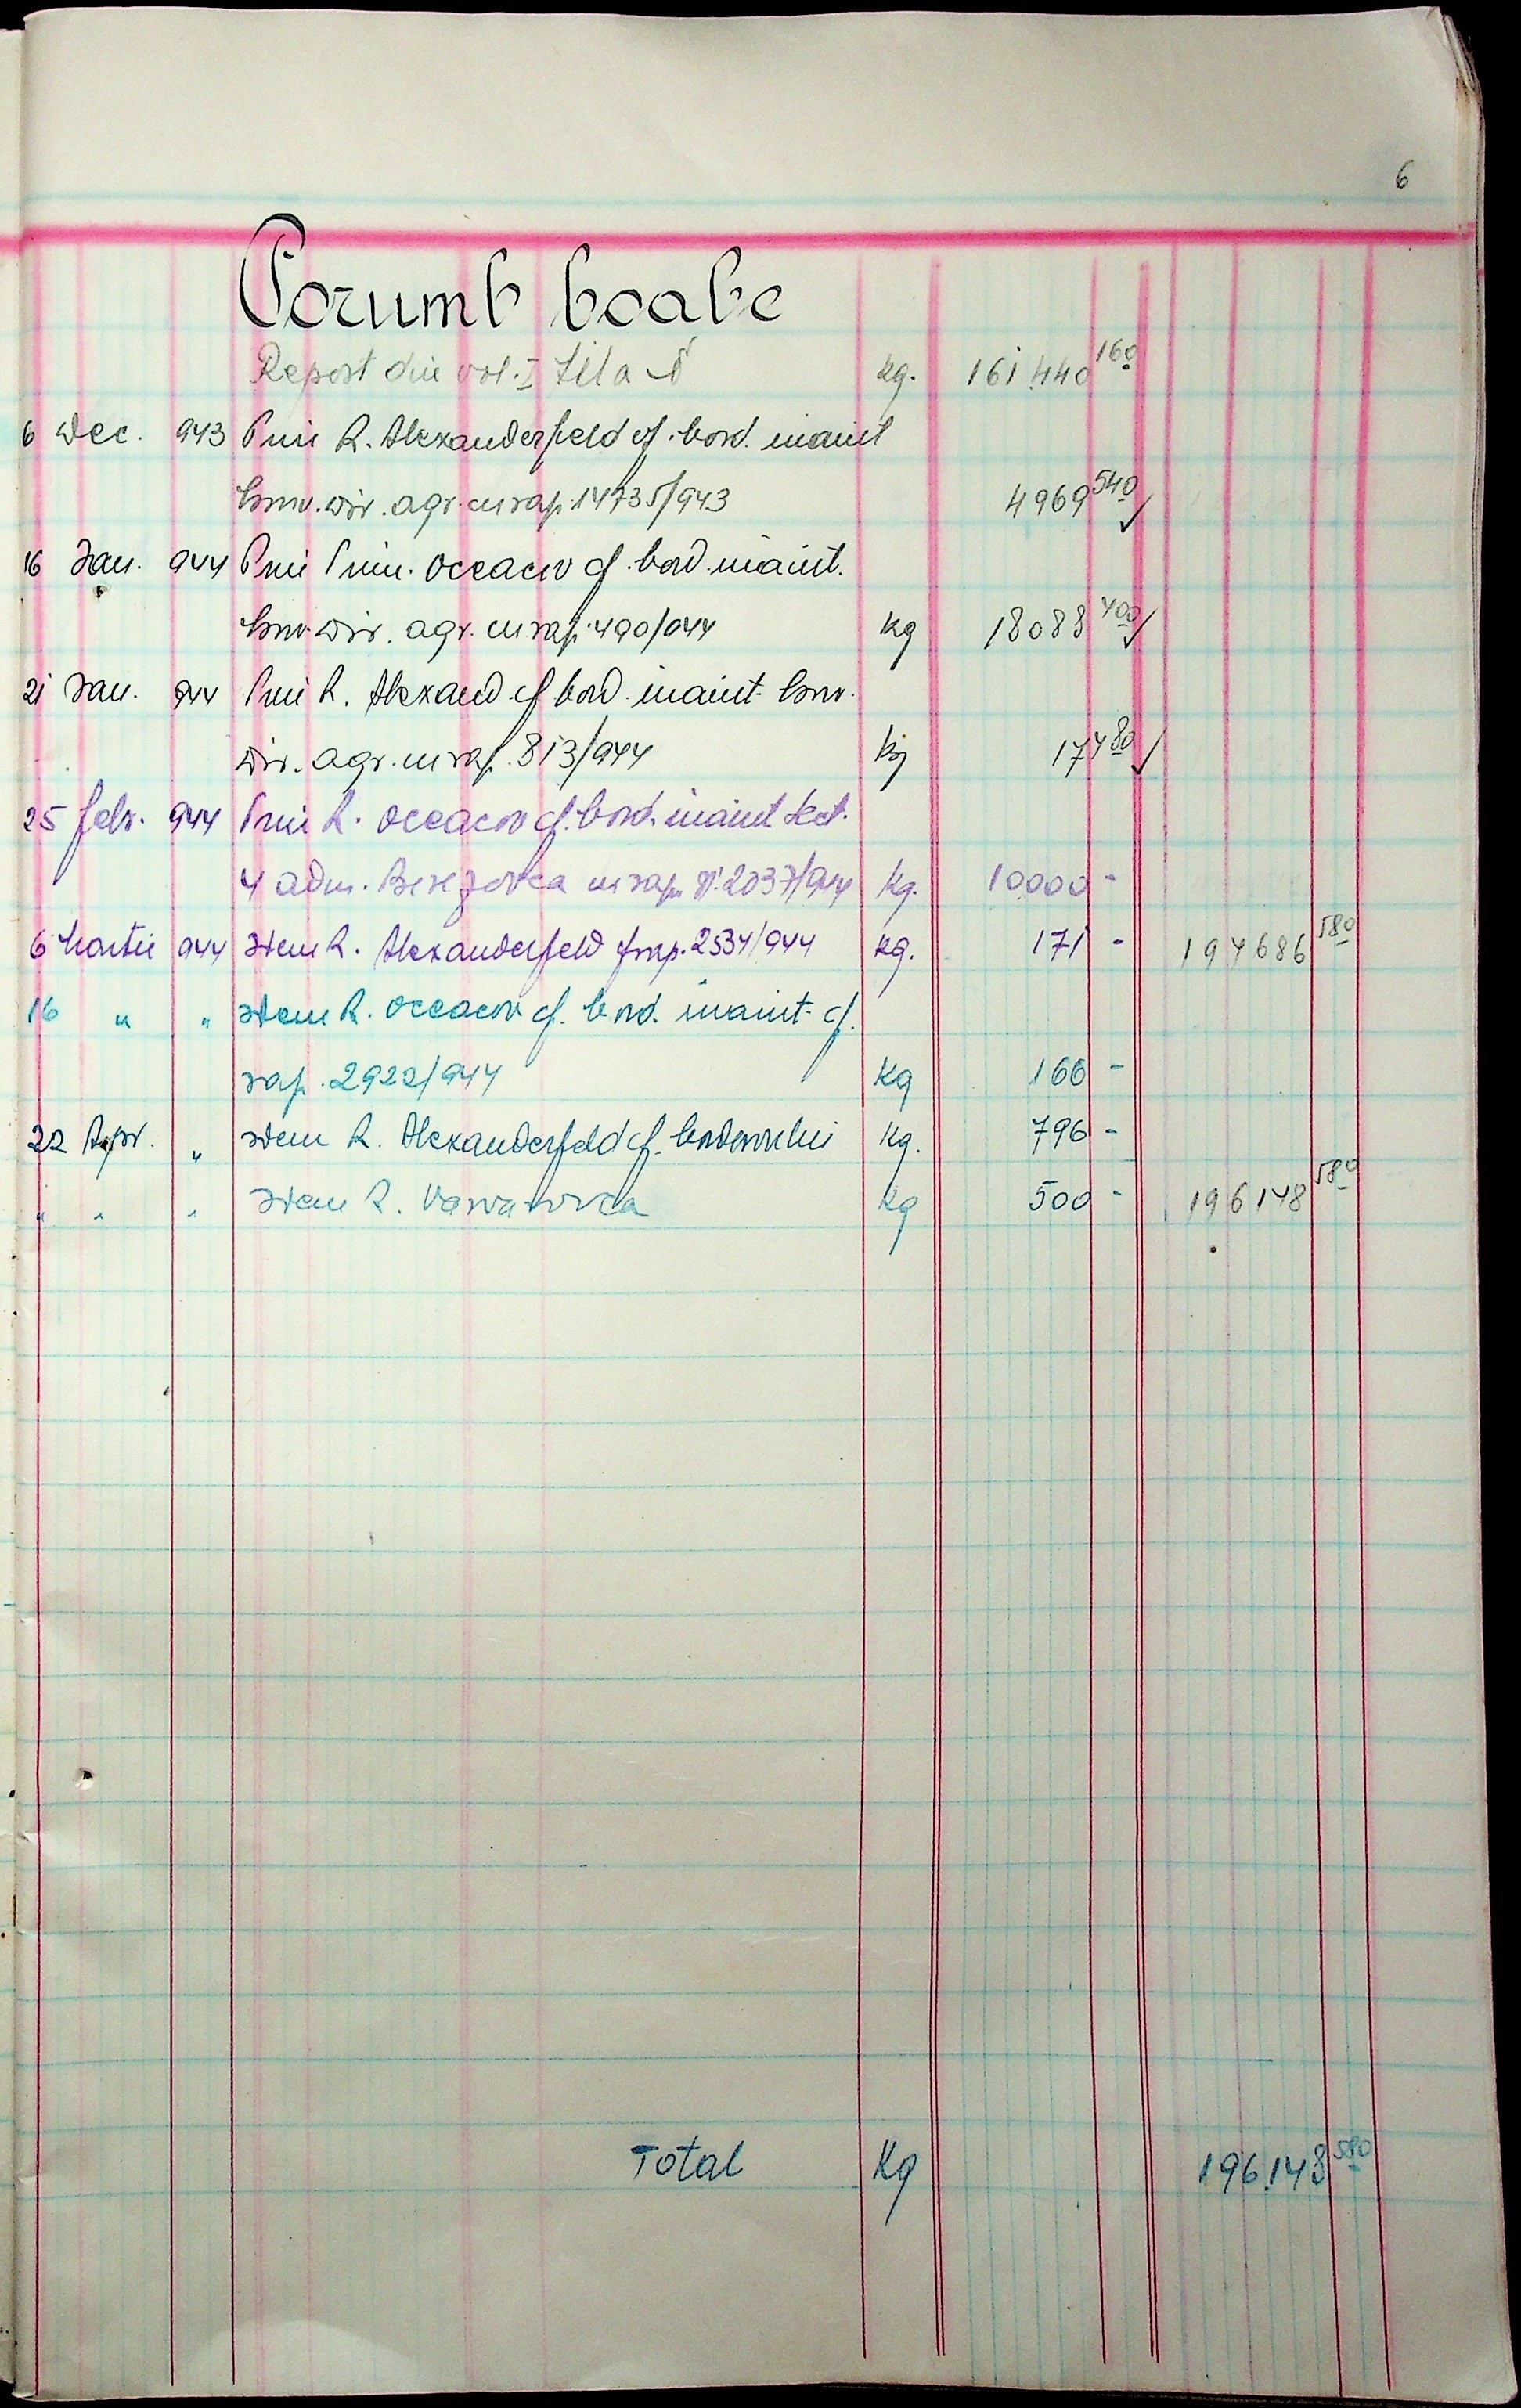 6
Porumb boabe
Report din vol. I fila 8 kg. 161.440 160
6 Dec. 943 Prin R. Alexanderfeld cf. bord. inaint
Dir. agr. cu rap. 14735/943 4969 540 ✓
16 Ian. 944 Prin Prim. Oceacov cf. bord. inaint.
Dir. agr. cu rap. 490/944 kg 18088 400 ✓
21 Ian. 944 Prin R. Alexand cf bord. inaint
Dir. agr. cu rap. 813/944 kg 17 480 ✓
25 febr. 944 Prin R. Oceacov cf. bord. inaint
4 adm. Berezovca cu rap. 2037/944 Kg. 10000 -
6 Martie 944 Idem R. Alexanderfeld rap. 2534/944 kg. 171 - 194686 580
16 " " Idem R. Oceacov cf. bord. inaint cf.
rap. 2922/944 Kg 166 -
22 Apr. " Idem R. Alexanderfeld cf. borderoului kg. 796 -
" " " Idem R. Varvarovca Kg 500 - 196148 580
Total Kg 196.148 580